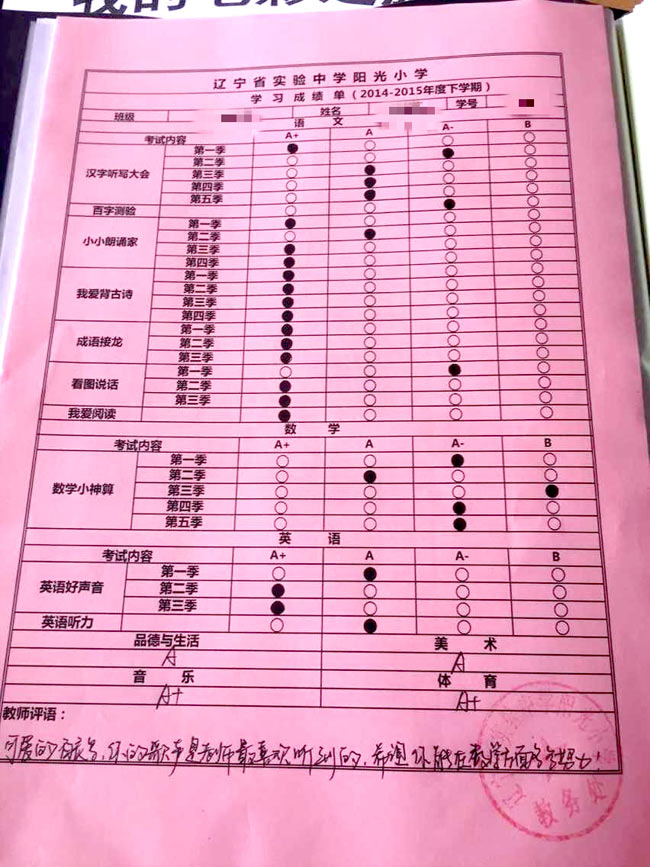 辽宁省实验中学阳光小学
学 习 成 绩 单（2014-2015年度下学期）
班级 姓名 学号
语 文
考试内容 A+ A A- B
汉字听写大会 第一季 ● ○ ○ ○
第二季 ○ ○ ● ○
第三季 ○ ● ○ ○
第四季 ○ ● ○ ○
第五季 ○ ● ○ ○
百字测验 ○ ○ ● ○
小小朗诵家 第一季 ● ○ ○ ○
第二季 ○ ● ○ ○
第三季 ● ○ ○ ○
第四季 ● ○ ○ ○
我爱背古诗 第一季 ● ○ ○ ○
第二季 ● ○ ○ ○
第三季 ● ○ ○ ○
第四季 ● ○ ○ ○
成语接龙 第一季 ● ○ ○ ○
第二季 ● ○ ○ ○
第三季 ● ○ ○ ○
看图说话 第一季 ○ ○ ● ○
第二季 ● ○ ○ ○
第三季 ● ○ ○ ○
我爱阅读 ● ○ ○ ○
数 学
考试内容 A+ A A- B
数学小神算 第一季 ○ ○ ● ○
第二季 ○ ● ○ ○
第三季 ○ ○ ○ ●
第四季 ○ ○ ● ○
第五季 ○ ○ ● ○
英 语
考试内容 A+ A A- B
英语好声音 第一季 ○ ● ○ ○
第二季 ● ○ ○ ○
第三季 ● ○ ○ ○
英语听力 ○ ● ○ ○
品德与生活 美 术
A A
音 乐 体 育
A+ A+
教师评语：
可爱的，你的歌声是老师最喜欢听到的，希望你能在数学方面多多努力！
教务处